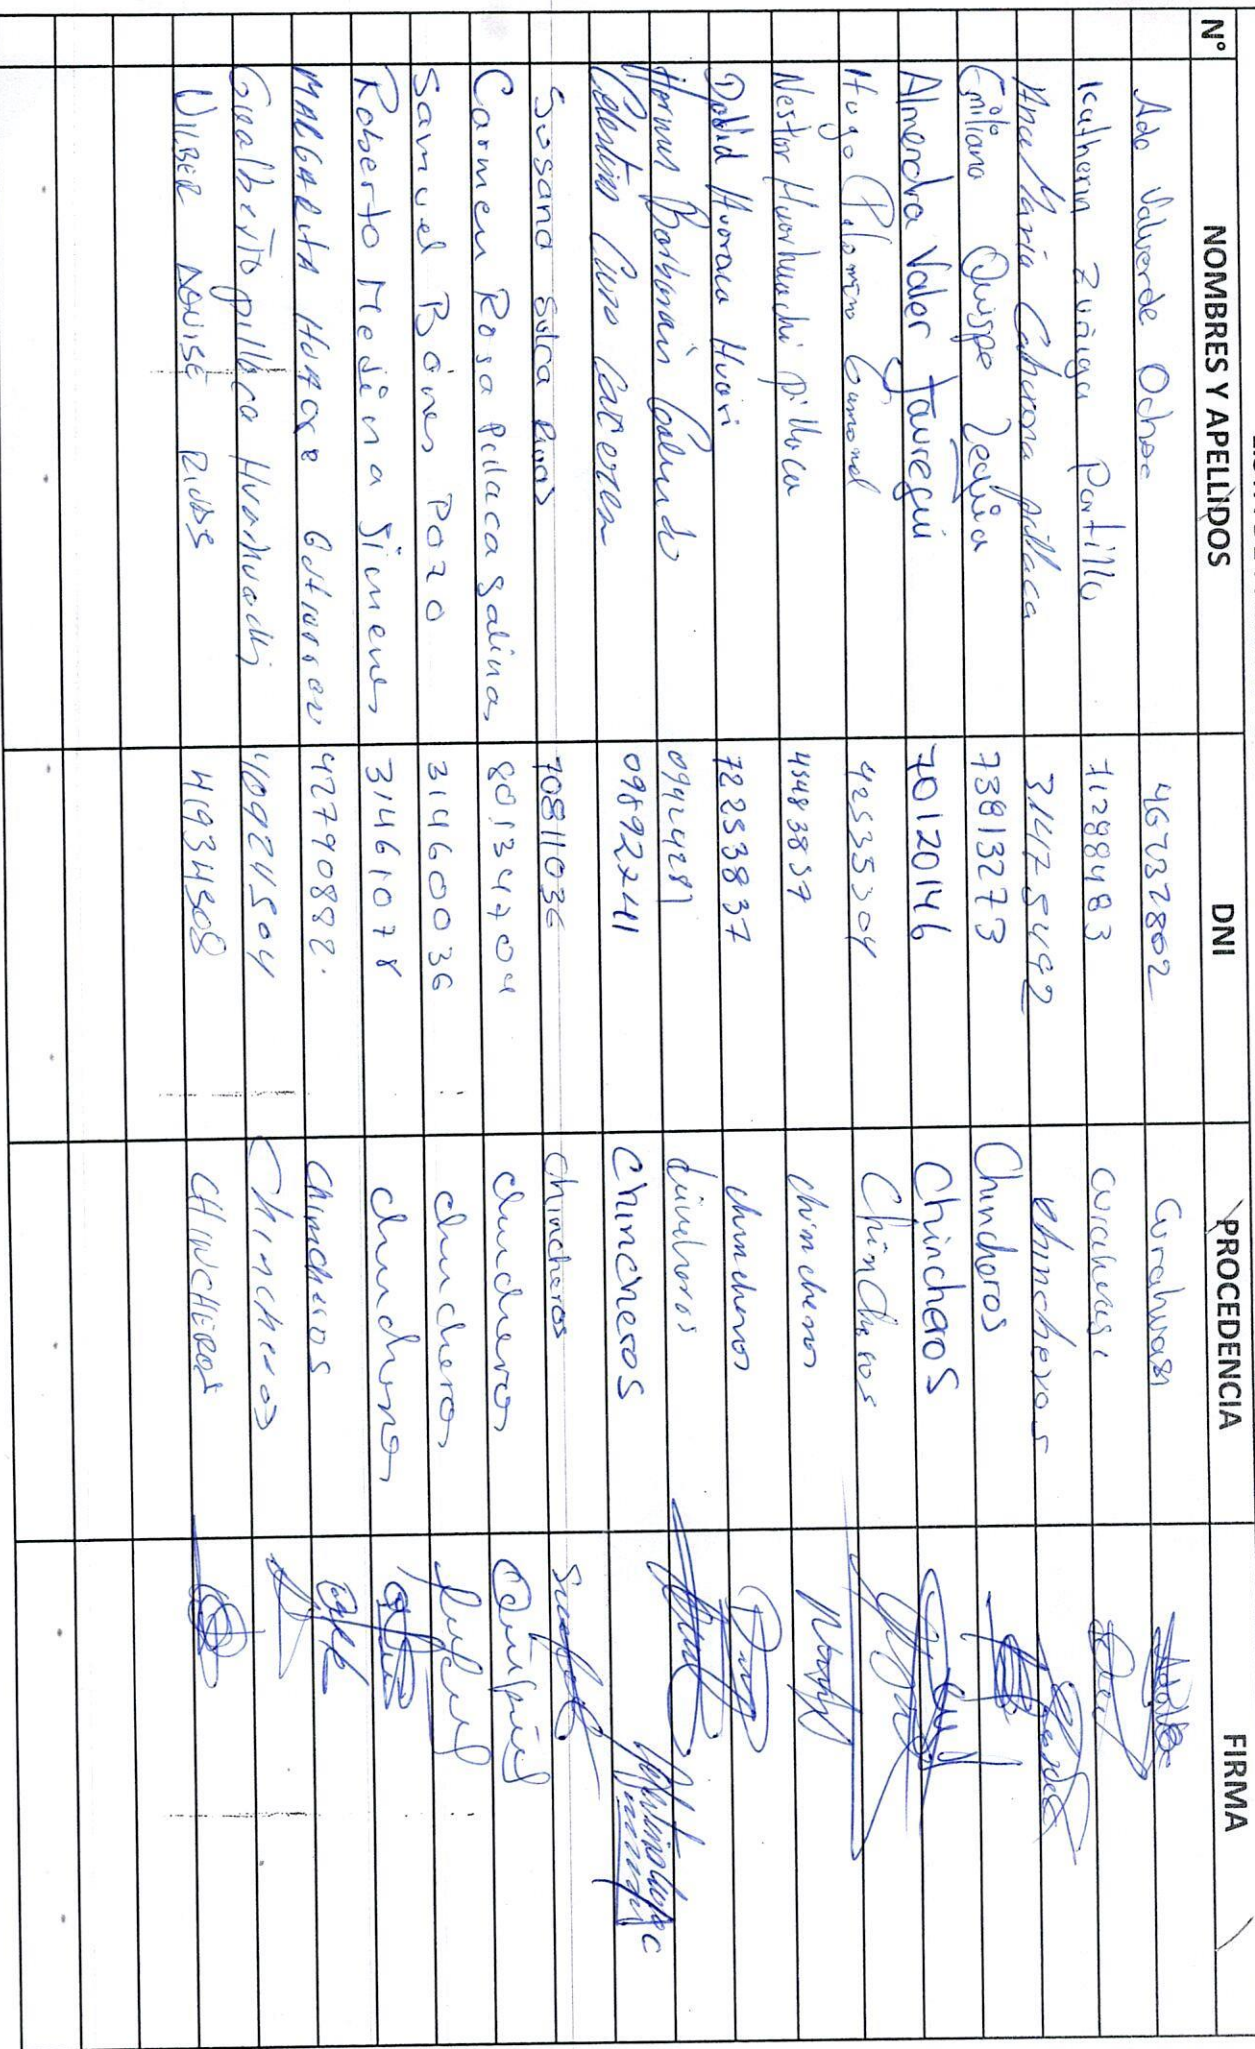 N° NOMBRES Y APELLIDOS DNI PROCEDENCIA FIRMA
Ada Valverde Ochoa 46732802 Curahuasi
Katherin Zuñiga Portillo 71288483 Curahuasi
Ana Maria Cahuana pillaca 31475492 chincheros
Emiliana Quispe Zequia 73813273 Chincheros
Almendra Valer Jauregui 70120146 Chincheros
Hugo Palomino 42535304 Chincheros
Nestor Huarhuachi pillaca 45483857 chincheros
David Huaraca Huari 72253837 chincheros
09424281
Celestino 09892741 Chincheros
Susana Sulca Rivas 70811036 chincheros
Carmen Rosa Pillaca Salinas 80134704 chincheros
Samuel Bónes Pozo 31460036 chincheros
Roberto Medina Jimenes 31461078 chincheros
MARGARITA 42790882. Chincheros
Gualberto pillaca Huarhuachi 40924504 Chincheros
WILBER RIVAS 41934508 CHINCHEROS